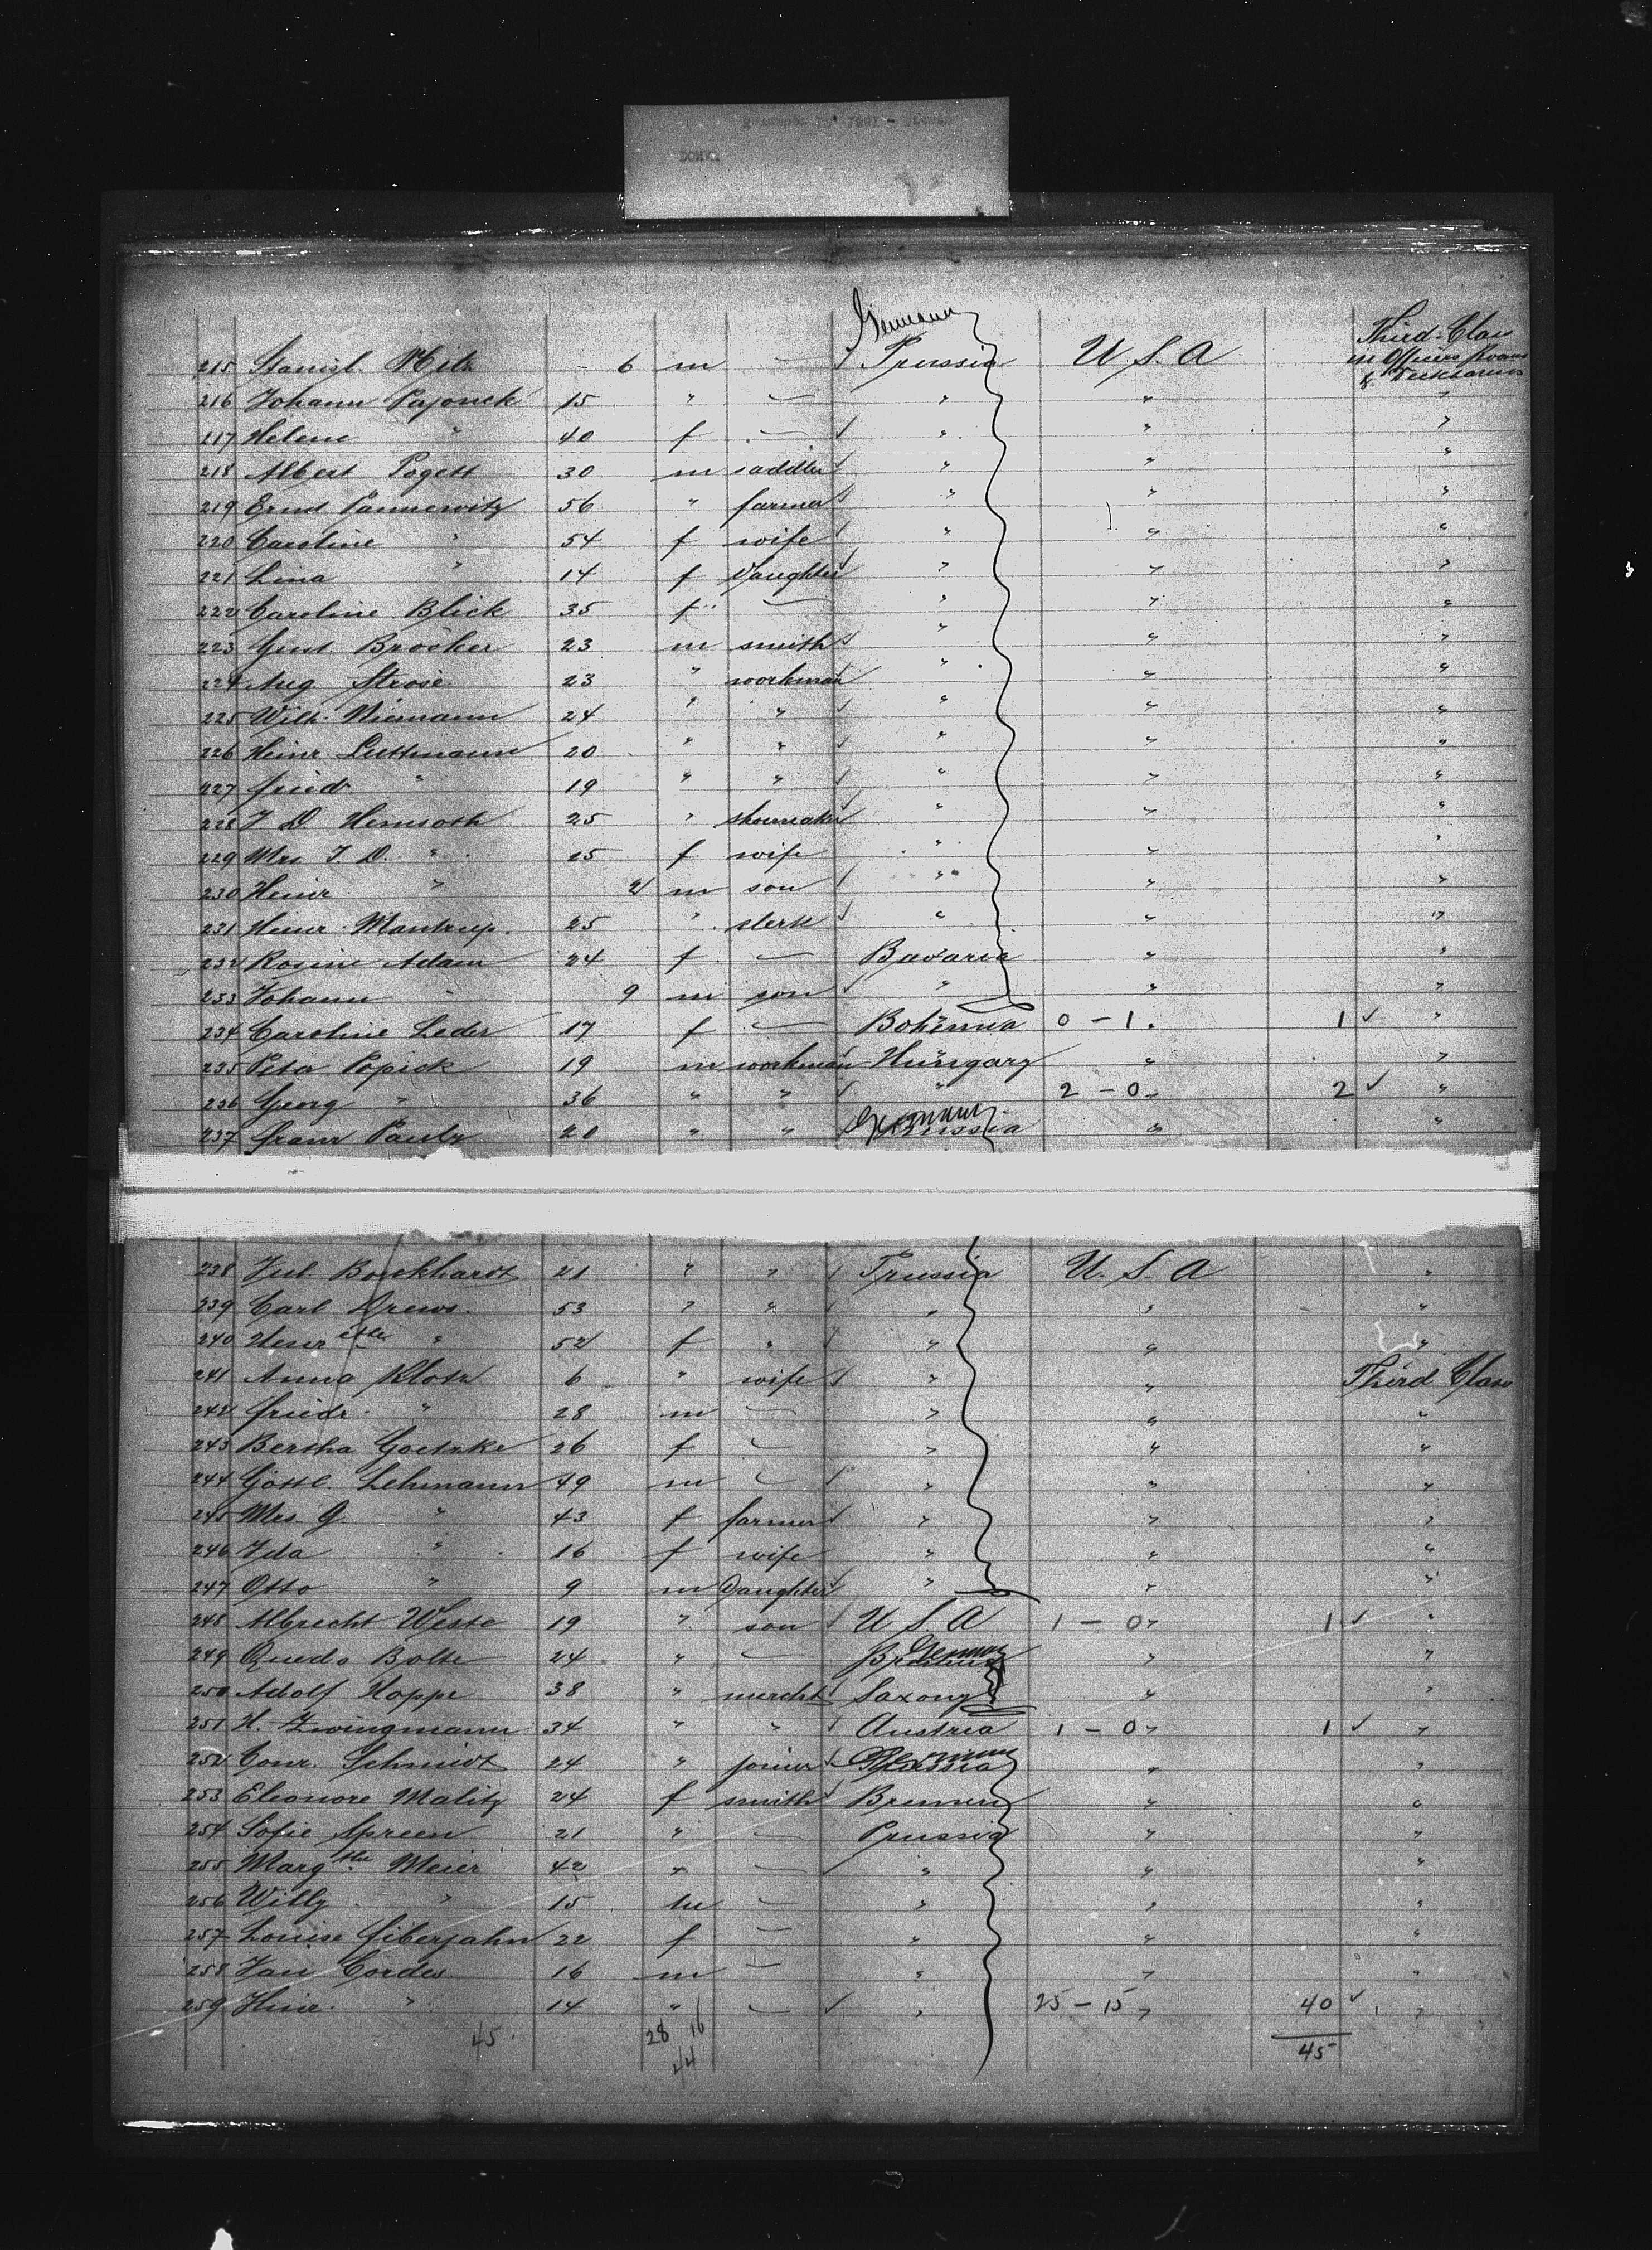 German
Third-Class
215 Stanisl. Hilz - 6 m — Prussia U. S. A in Officers Rooms
& Decksaloons
216 Johann Pajonck 15 " — " " "
217 Helene " 40 f — " " "
218 Albert Pogett 30 m saddler " " "
219 Ernst Pannewitz 56 " farmer " " "
220 Caroline " 54 f wife " " "
221 Lina " 14 f Daughter " " "
222 Caroline Blick 35 f — " " "
223 Gust Bröcker 23 m smith " " "
224 Aug. Strose 23 " workman " " "
225 Wilh. Niemann 24 " " " " "
226 Heinr. Luttmann 20 " " " " "
227 Friedr. " 19 " " " " "
228 J D Hemsoth 25 " shoemaker " " "
229 Mrs J. D. " 25 f wife " " "
230 Heinr " 2 m son " " "
231 Heinr. Mantrup. 25 " clerk " " "
232 Rosine Adam 24 f — Bavaria " "
233 Johann " 9 m son " " "
234 Caroline Leder 17 f — Bohemia 0 - 1 " 1 ✓ "
235 Peter Popick 19 m workman Hungary " "
236 Georg " 36 " " " 2 - 0 " 2 ✓ "
German
237 Franz Pautz 20 " " Prussia " "
238 Jul. Bourkhardt 21 " " Prussia U. S. A "
239 Carl Drews. 53 " " " " "
240 Henriette " 52 f " " " "
241 Anna Klotz 6 " wife " " Third Class
242 Friedr. " 28 m — " " "
243 Bertha Goetzke 26 f — " " "
244 Gottl. Lehmann 49 m — " " "
245 Mrs. G. " 43 f farmer " " "
246 Ida " 16 f wife " " "
247 Otto " 9 m Daughter " " "
248 Albrecht Weste 19 " son U S. A 1 - 0 " 1 ✓ "
German
249 Quedo Bolte 24 " — " "
250 Adolf Hoppe 38 " mercht Saxony " "
251 H. Zwingmann 34 " " Austria 1 - 0 " 1 ✓ "
German
252 Conr. Schmidt 24 " joiner Prussia " "
253 Eleonore Malitz 24 f smith Bremen " "
254 Sofie Spreen 21 " — Prussia " "
255 Margthe Meier 42 " — " " "
256 Willy " 15 m — " " "
257 Louise Fiberjahn 22 f — " " "
258 Jan Cordes 16 m — " " "
259 Heinr. " 14 " — " 25 - 15 " 40 ✓ "
45 28 16 45
44